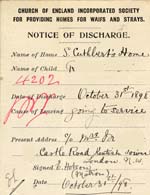 CHURCH OF ENGLAND INCORPORATED SOCIETY
FOR PROVIDING HOMES FOR WAIFS AND STRAYS.
NOTICE OF DISCHARGE.
Name of Home S. Cuthbert's Home
Name of Child
4202
Date of Discharge October 31st 1898
Cause of Leaving going to service
Present Address
Castle Road Kentish Town
London N.W.
Signed
(Matron)
Date October 31 1898